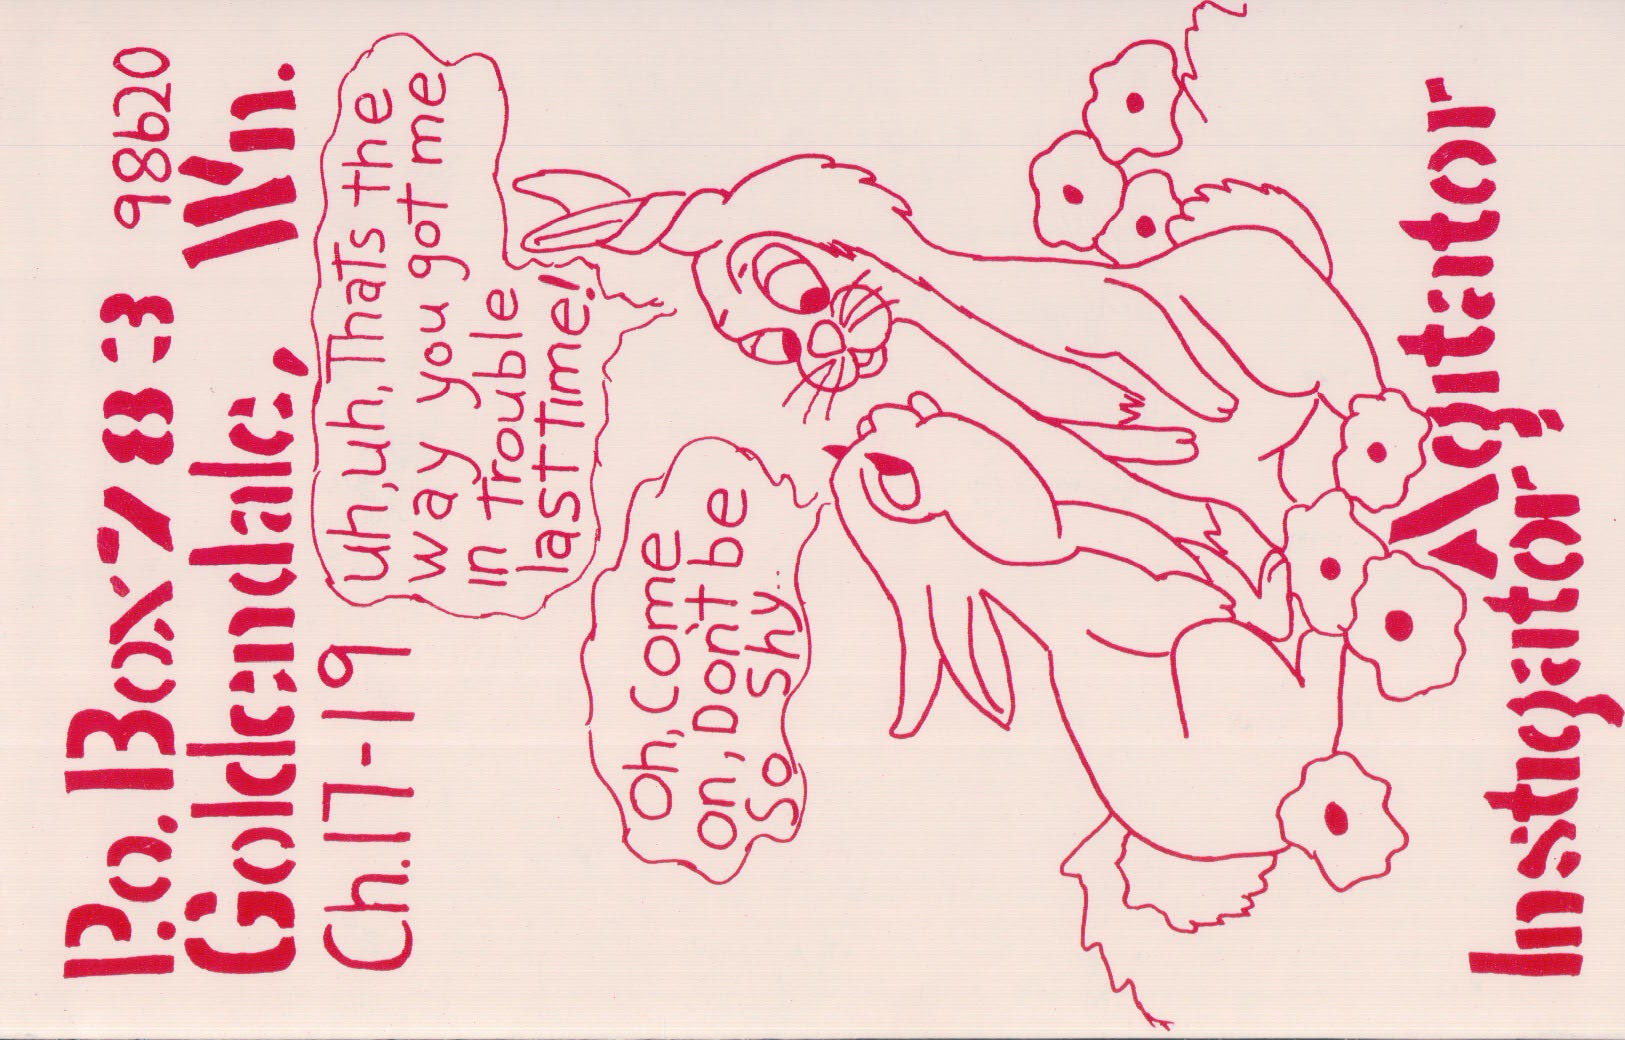 P.O. Box 783 98620
Goldendale, Wn.
Ch. 17-19
uh, uh, That's the
way you got me
in Trouble
last Time!
Oh, Come
on, Don't be
So Shy..
Instigator Agitator